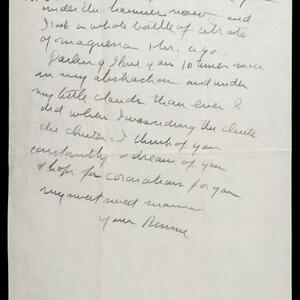 under the hammer now and
I took a whole bottle of citrate
of magnesia 1 hr. ago.
Darling I love you 10 times more
in my abstraction and under
my little clouds than ever I
did when I was
the I think of you
constantly & dream of you
& hope for coronations for you
my sweet sweet mama
Your